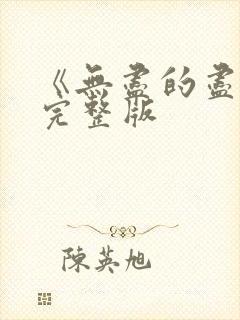 《無盡的盡
完整版
陳英旭